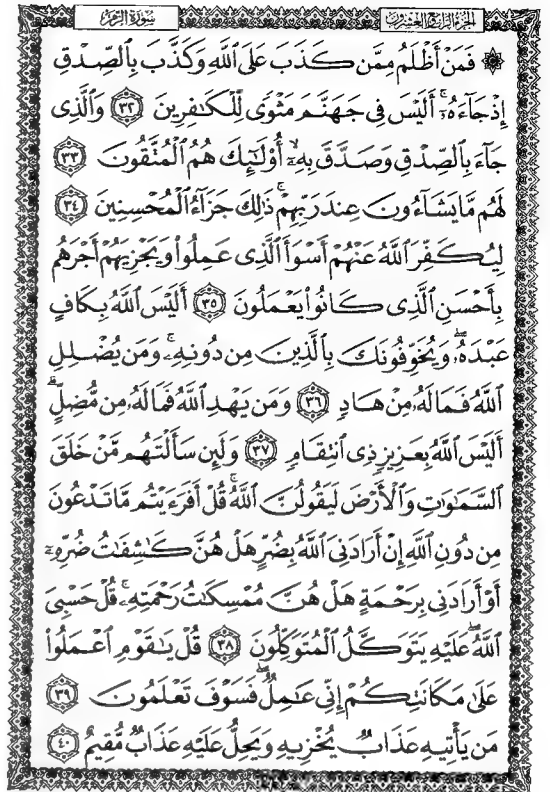 الجزء الرابع والعشرون
سورة الزمر
۞ فَمَنْ أَظْلَمُ مِمَّن كَذَبَ عَلَى ٱللَّهِ وَكَذَّبَ بِٱلصِّدْقِ
إِذْ جَآءَهُۥٓ ۚ أَلَيْسَ فِى جَهَنَّمَ مَثْوًى لِّلْكَٰفِرِينَ ٣٢ وَٱلَّذِى
جَآءَ بِٱلصِّدْقِ وَصَدَّقَ بِهِۦٓ ۙ أُو۟لَٰٓئِكَ هُمُ ٱلْمُتَّقُونَ ٣٣
لَهُم مَّا يَشَآءُونَ عِندَ رَبِّهِمْ ۚ ذَٰلِكَ جَزَآءُ ٱلْمُحْسِنِينَ ٣٤
لِيُكَفِّرَ ٱللَّهُ عَنْهُمْ أَسْوَأَ ٱلَّذِى عَمِلُوا۟ وَيَجْزِيَهُمْ أَجْرَهُم
بِأَحْسَنِ ٱلَّذِى كَانُوا۟ يَعْمَلُونَ ٣٥ أَلَيْسَ ٱللَّهُ بِكَافٍ
عَبْدَهُۥ ۖ وَيُخَوِّفُونَكَ بِٱلَّذِينَ مِن دُونِهِۦ ۚ وَمَن يُضْلِلِ
ٱللَّهُ فَمَا لَهُۥ مِنْ هَادٍ ٣٦ وَمَن يَهْدِ ٱللَّهُ فَمَا لَهُۥ مِن مُّضِلٍّ ۗ
أَلَيْسَ ٱللَّهُ بِعَزِيزٍ ذِى ٱنتِقَامٍ ٣٧ وَلَئِن سَأَلْتَهُم مَّنْ خَلَقَ
ٱلسَّمَٰوَٰتِ وَٱلْأَرْضَ لَيَقُولُنَّ ٱللَّهُ ۚ قُلْ أَفَرَءَيْتُم مَّا تَدْعُونَ
مِن دُونِ ٱللَّهِ إِنْ أَرَادَنِىَ ٱللَّهُ بِضُرٍّ هَلْ هُنَّ كَٰشِفَٰتُ ضُرِّهِۦٓ
أَوْ أَرَادَنِى بِرَحْمَةٍ هَلْ هُنَّ مُمْسِكَٰتُ رَحْمَتِهِۦ ۚ قُلْ حَسْبِىَ
ٱللَّهُ ۖ عَلَيْهِ يَتَوَكَّلُ ٱلْمُتَوَكِّلُونَ ٣٨ قُلْ يَٰقَوْمِ ٱعْمَلُوا۟
عَلَىٰ مَكَانَتِكُمْ إِنِّى عَٰمِلٌ ۖ فَسَوْفَ تَعْلَمُونَ ٣٩
مَن يَأْتِيهِ عَذَابٌ يُخْزِيهِ وَيَحِلُّ عَلَيْهِ عَذَابٌ مُّقِيمٌ ٤٠